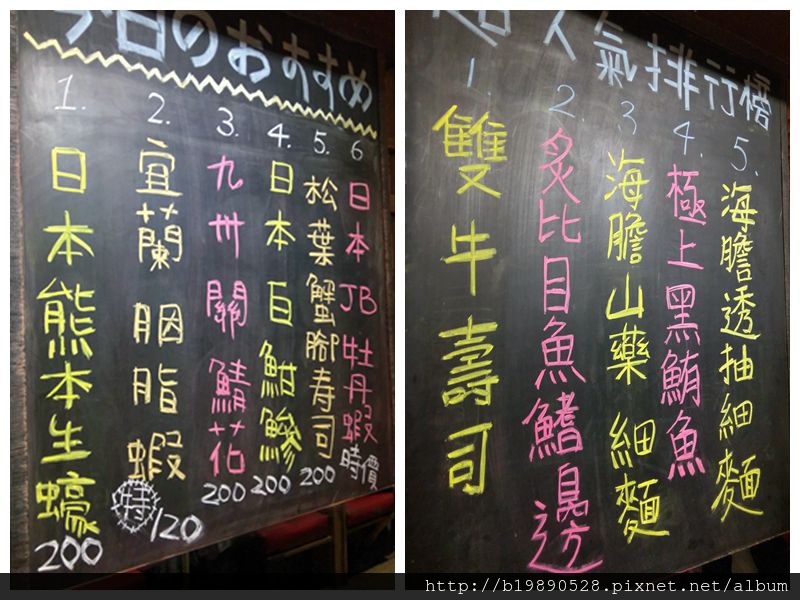 今日のおすすめ
1. 日本熊本生蠔 200
2. 宜蘭胭脂蝦 特 120
3. 九州關鯖花 200
4. 日本白魽鰺 200
5. 松葉蟹腳寿司 200
6 日本JB牡丹蝦 時價
超人氣排行榜
1. 雙牛壽司
2. 炙比目魚鰭邊
3 海膽山藥細麵
4. 極上黑鮪魚
5. 海膽透抽細麵
http://b19890528.pixnet.net/album